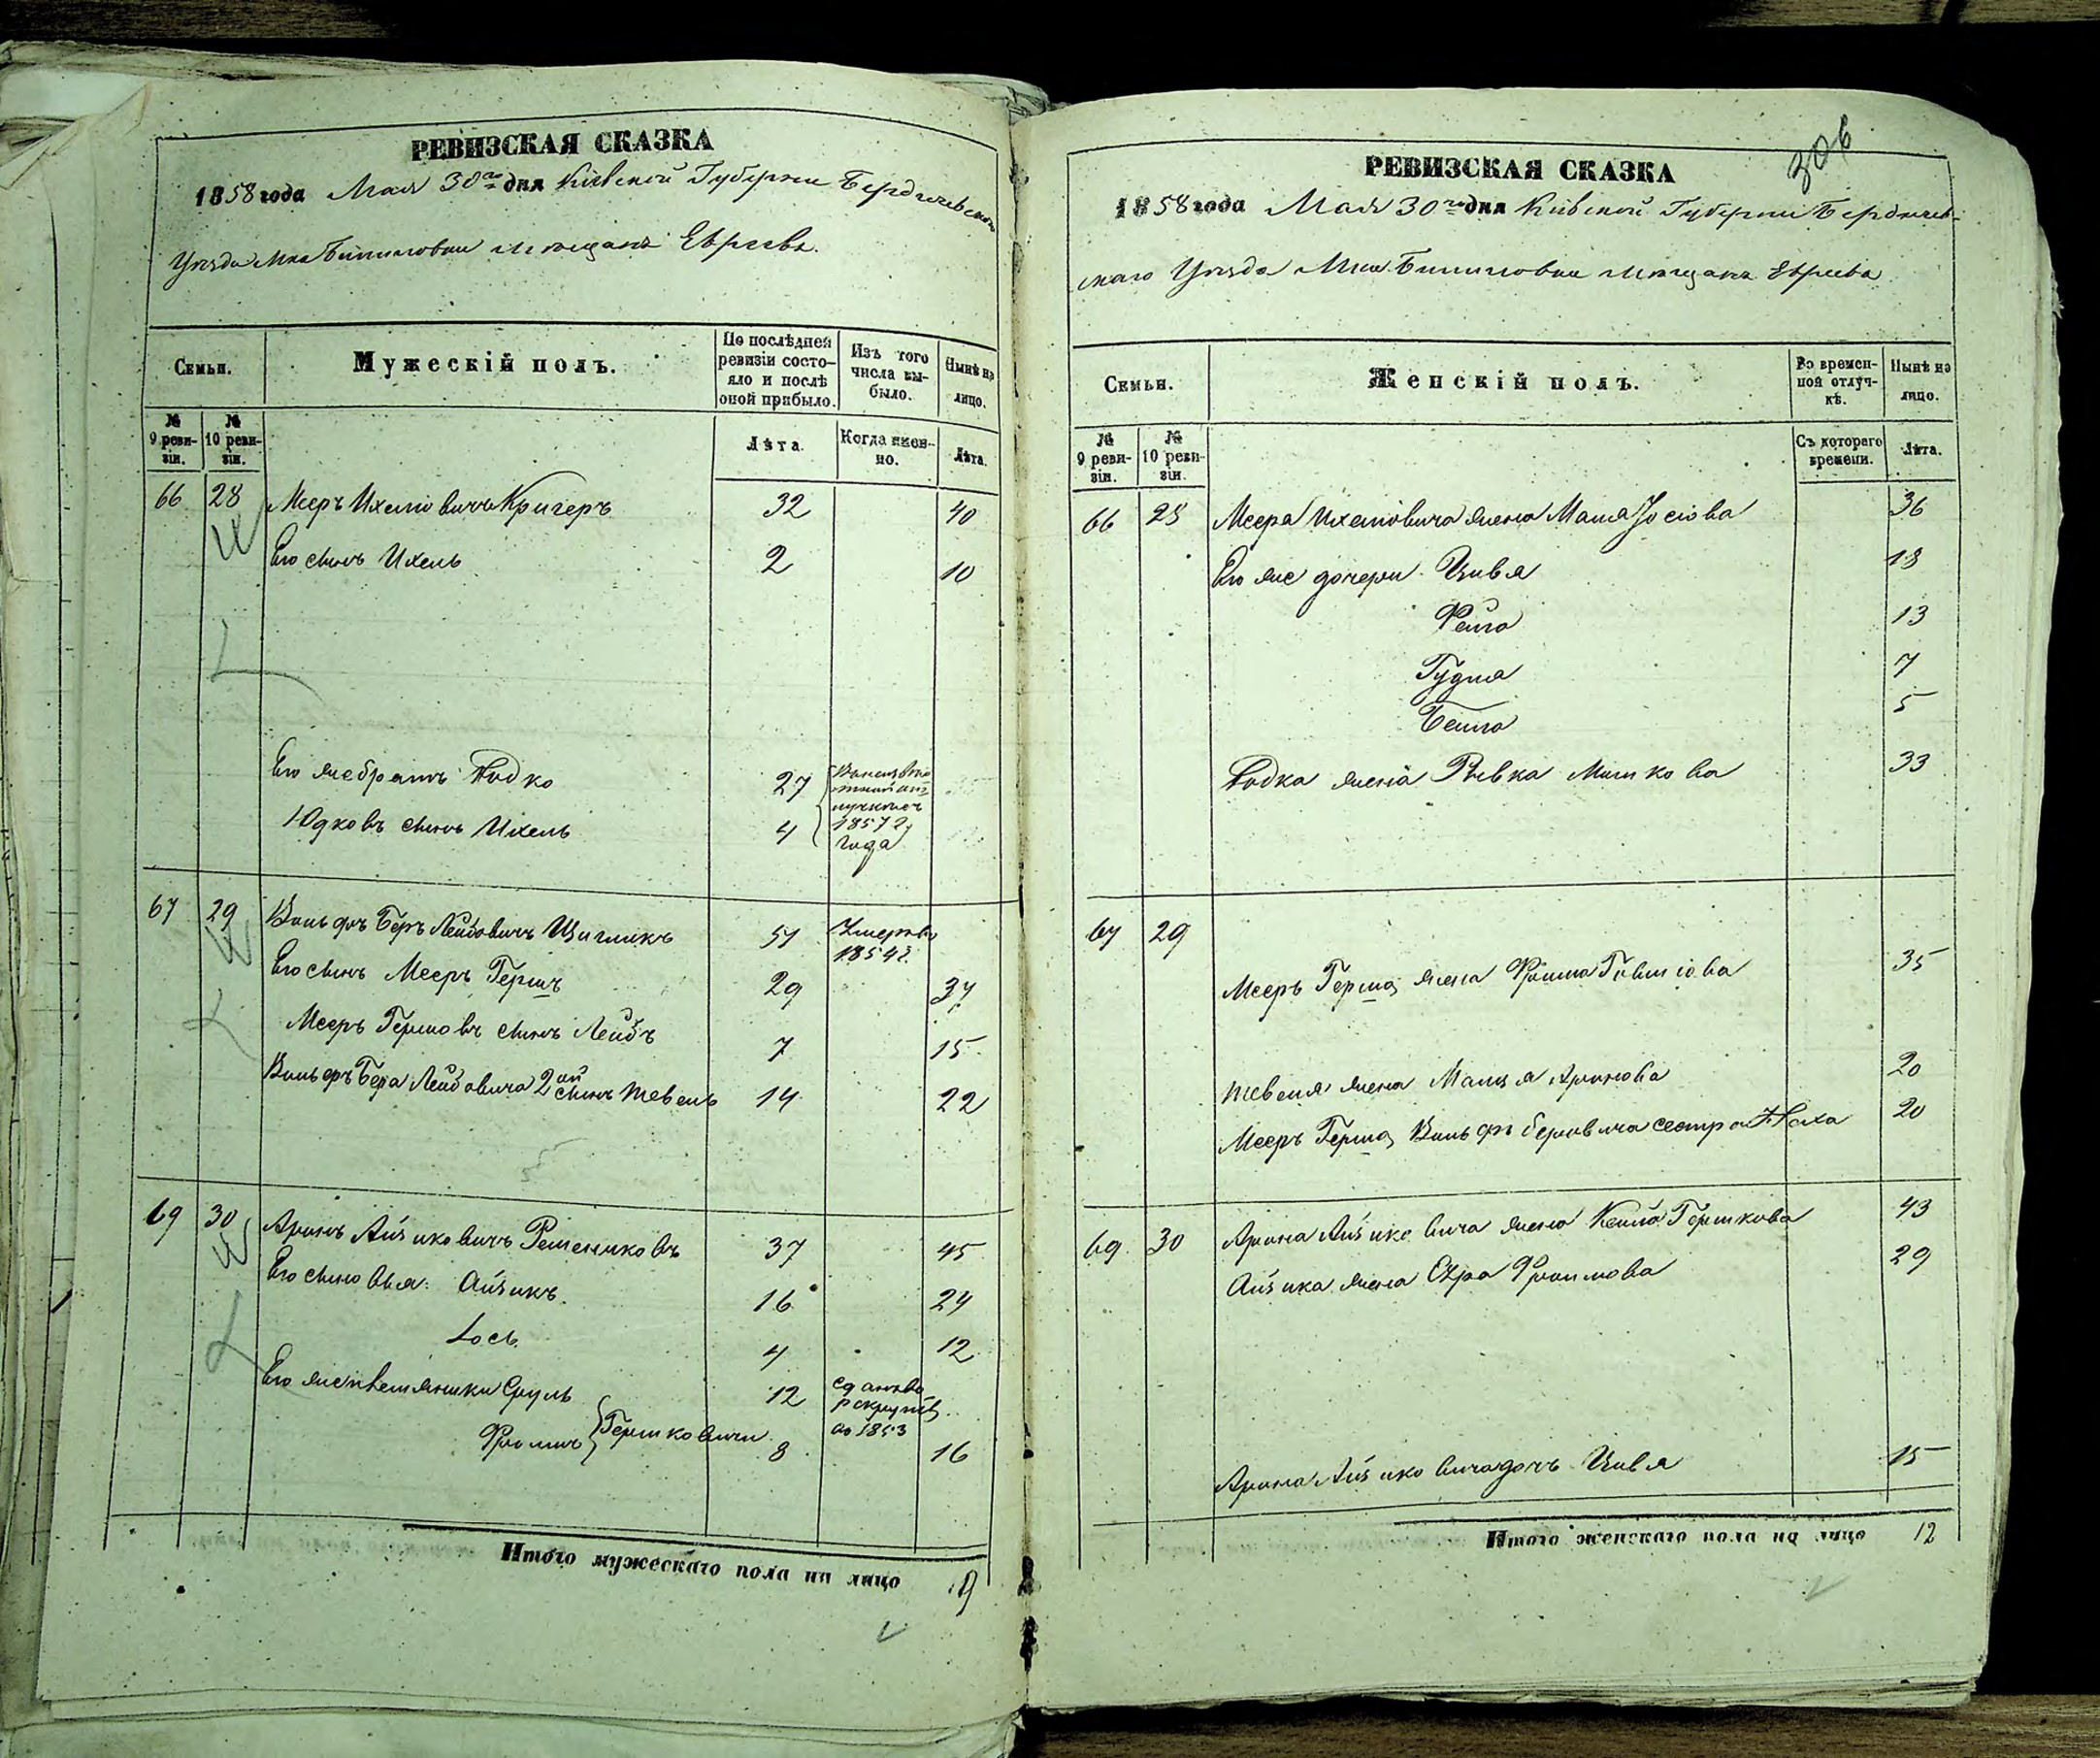 РЕВИЗСКАЯ СКАЗКА
1858 года Мая 30го дня Кіевской Губерніи Бердичевскаго
Уѣзда Мка Бѣлиловки мѣщанъ Евреевъ.
Семьи.
Мужескій полъ.
По послѣдней ревизіи состо-
яло и послѣ оной прибыло.
Изъ того числа вы-
было.
Нынѣ на лицо.
№ 9 реви-
зіи.
№ 10 реви-
зіи.
Лѣта.
Когда имен-
но.
Лѣта.
66 28 Мееръ Ихелиовичъ Кригеръ 32 40
Его сынъ Ихель 2 10
Его же братъ Юдко 27
Юдковъ сынъ Ихель 4
1857 года
67 29 Вольфъ Беръ Лейбовичъ Цигликъ 51 Умеръ 1854 г.
Его сынъ Мееръ Гершъ 29 37
Мееръ Гершовъ сынъ Лейбъ 7 15
Вольфъ Бера Лейбовича 2ой сынъ Тевель 14 22
69 30 Аронъ Айзиковичъ Решетниковъ 37 45
Его сыновья: Айзикъ 16 24
Іось 4 12
Его же племянники Сруль 12 сданъ въ рекруты въ 1853
Фроимъ } Гершковичи 8 16
Итого мужескаго пола на лицо 9
306
РЕВИЗСКАЯ СКАЗКА
1858 года Мая 30го дня Кіевской Губерніи Бердичев-
скаго Уѣзда Мка Бѣлиловки мѣщанъ Евреевъ
Семьи.
Женскій полъ.
Во времен-
ной отлуч-
кѣ.
Нынѣ на лицо.
№ 9 реви-
зіи.
№ 10 реви-
зіи.
Съ котораго времени.
Лѣта.
66 28 Меера Ихелиовича жена Маша Іосіова 36
Его же дочери Цивя 18
Фейга 13
Гудля 7
Бейла 5
Юдка жена Рывка Мошкова 33
67 29
Мееръ Герша жена Фрима 35
Тевеля жена Маля Аронова 20
Мееръ Герша Вольфъ Беровича сестра Хая 20
69 30 Арона Айзиковича жена Кейла Гершкова 43
Айзика жена Сура Фроимова 29
Арона Айзиковича дочь Цивя 15
Итого женскаго пола на лицо 12